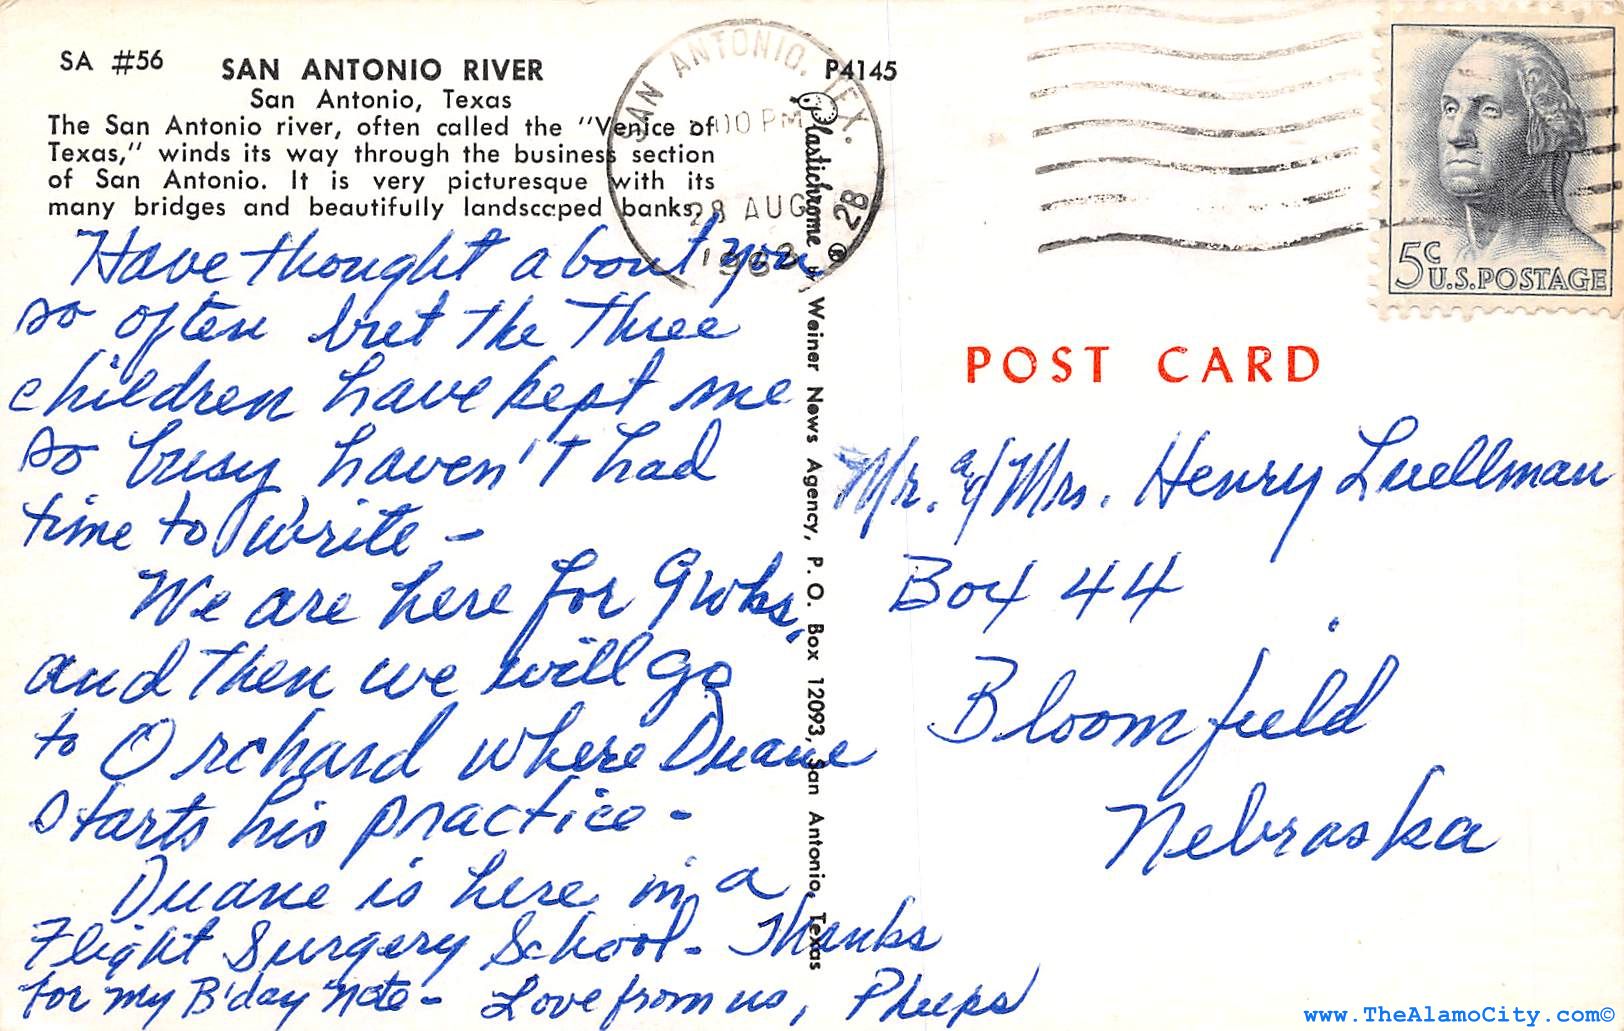 SA #56
SAN ANTONIO RIVER
San Antonio, Texas
The San Antonio river, often called the "Venice of
Texas," winds its way through the business section
of San Antonio. It is very picturesque with its
many bridges and beautifully landscaped banks.
Have thought about you
so often but the three
children have kept me
so busy haven't had
time to write -
We are here for 9 wks,
and then we will go
to Orchard where Duane
starts his practice -
Duane is here in a
Flight Surgery School - Thanks
for my B'day note - Love from us, Pheeps
P4145
Plastichrome ®
by Weiner News Agency, P. O. Box 12093, San Antonio, Texas
SAN ANTONIO, TEX.
00 PM
28 AUG
28
5c
U.S. POSTAGE
POST CARD
Mr. & Mrs. Henry Luellman
Box 44
Bloomfield
Nebraska
www.TheAlamoCity.com©